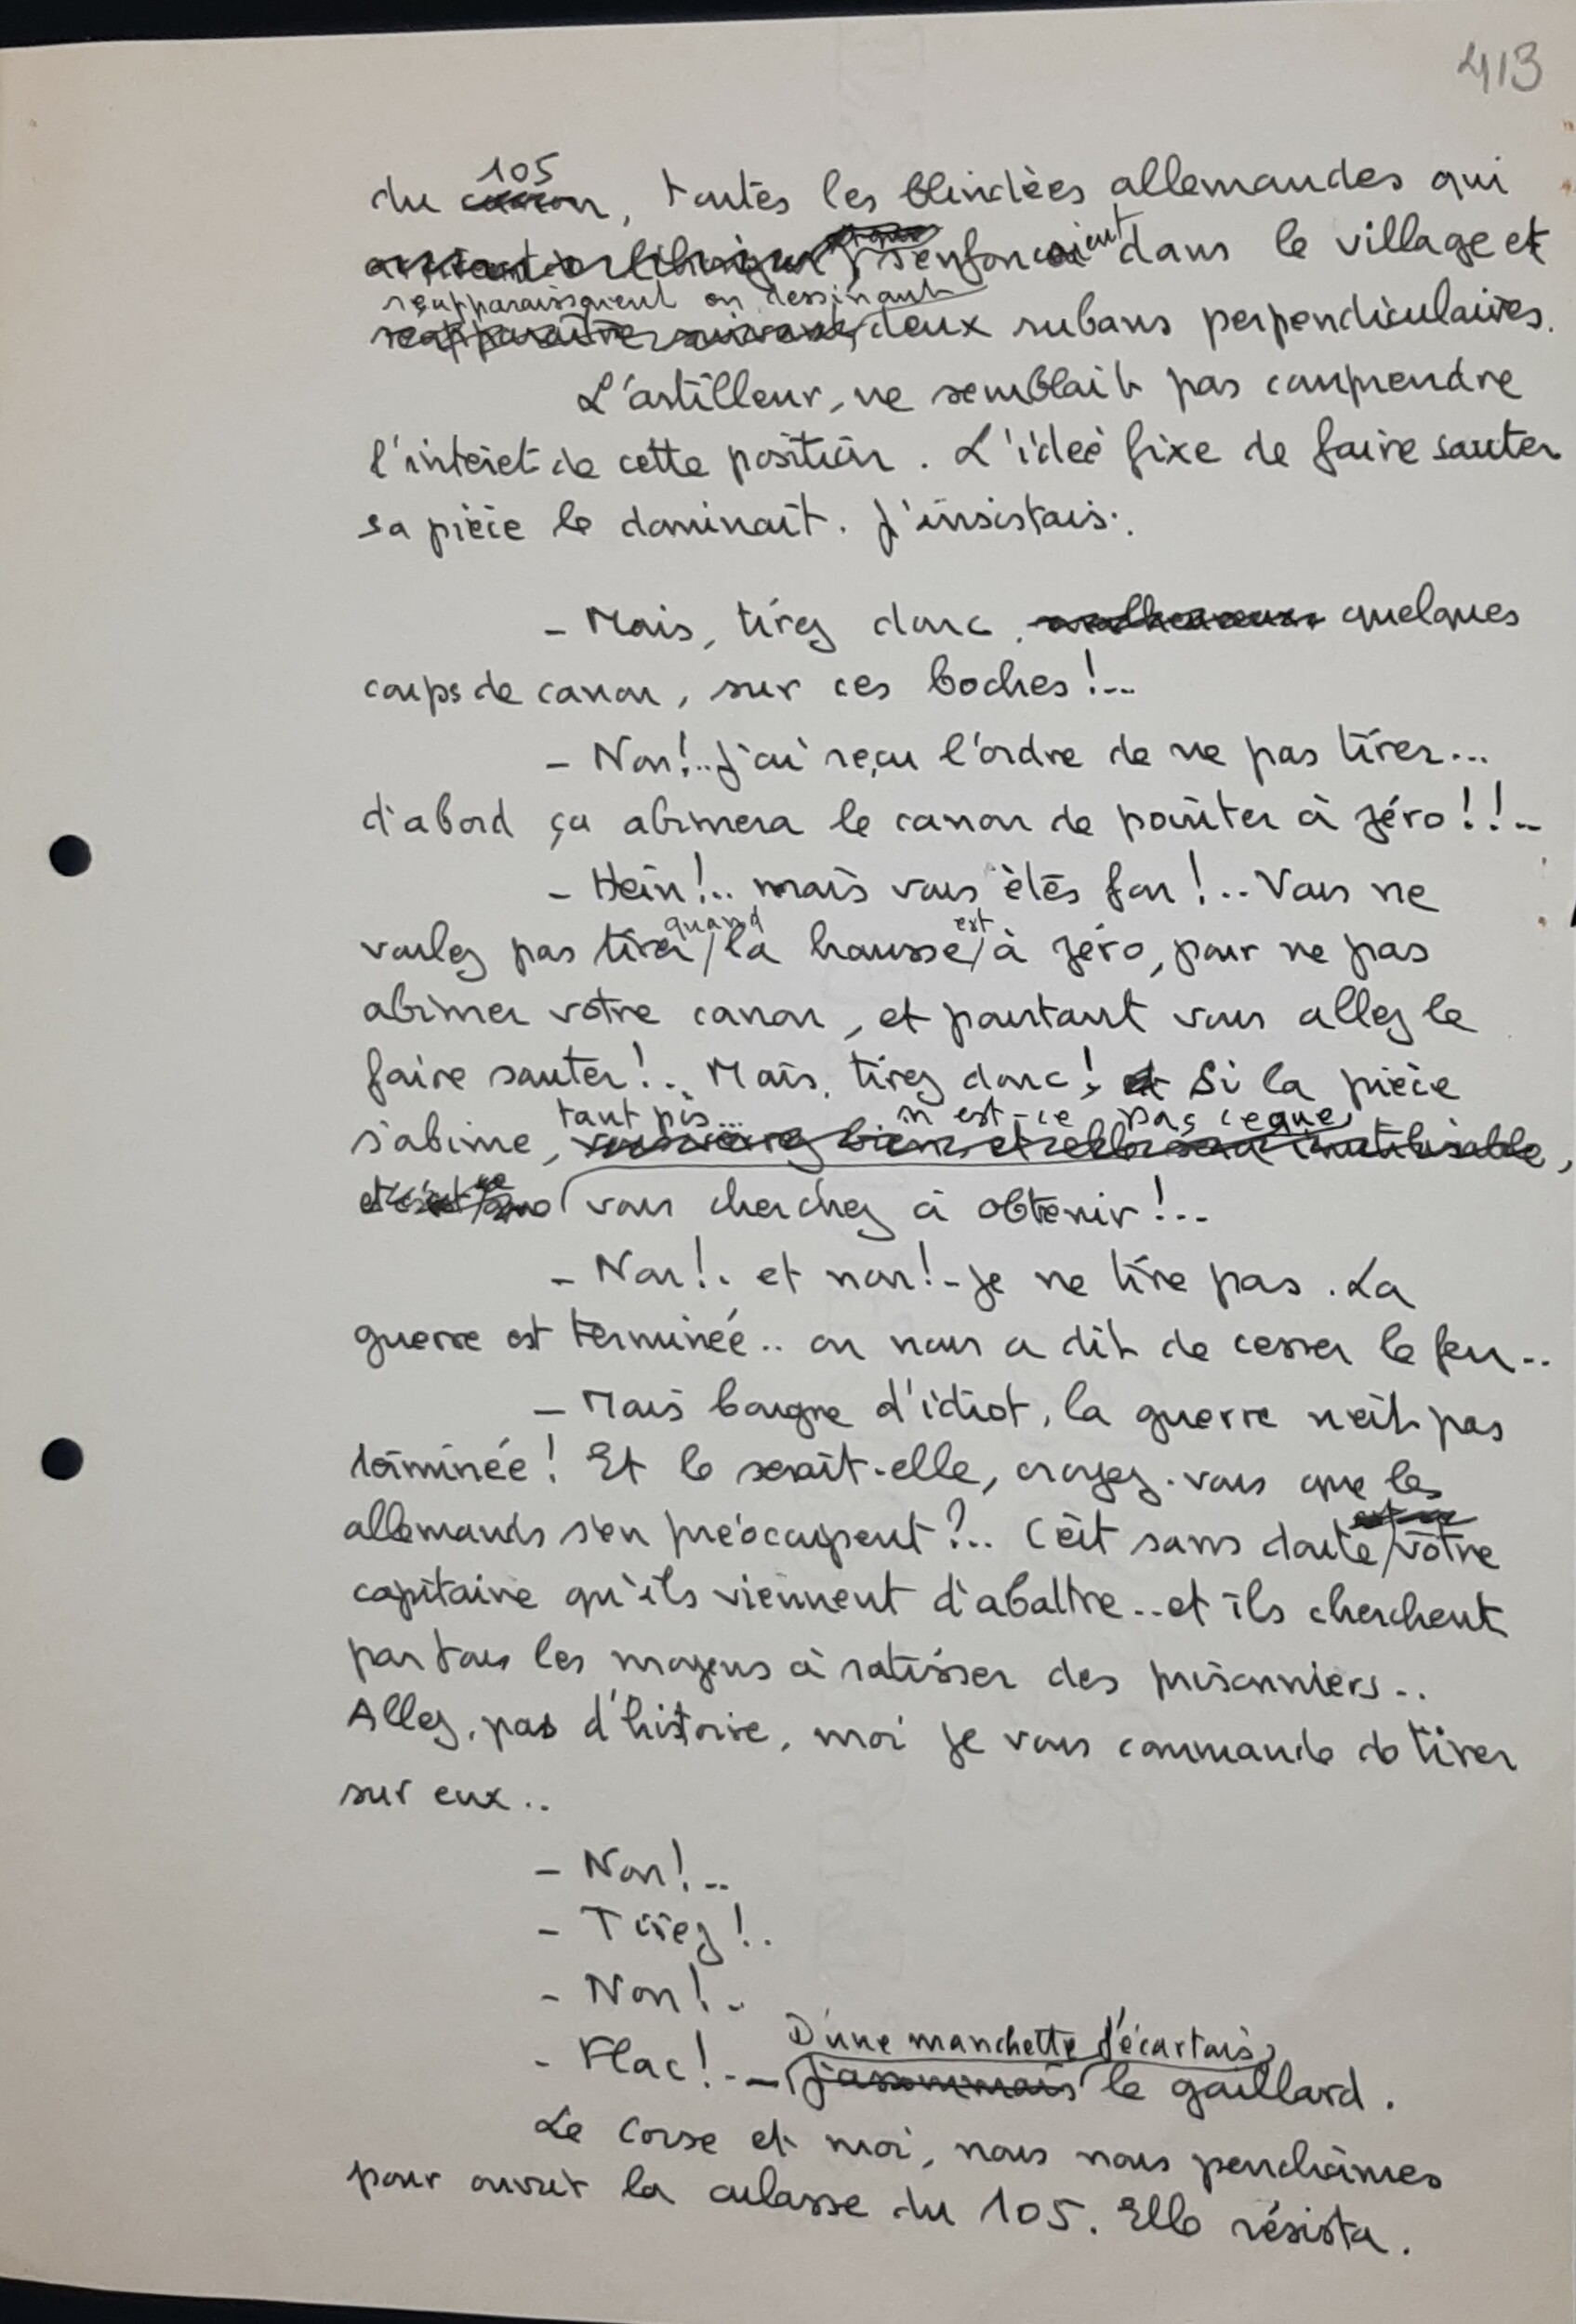 413
du 105, toutes les blindées allemandes qui
s'enfonçaient dans le village et
réapparaissaient en dessinant deux rubans perpendiculaires.
L'artilleur, ne semblait pas comprendre
l'intérêt de cette position. L'idée fixe de faire sauter
sa pièce le dominait. J'insistais:
- Mais, tirez donc, quelques
coups de canon, sur ces boches!...
- Non!.. J'ai reçu l'ordre de ne pas tirer...
d'abord ça abimera le canon de pointer à zéro!!..
- Hein!.. mais vous êtes fou!.. Vous ne
voulez pas tirer quand la hausse est à zéro, pour ne pas
abimer votre canon, et pourtant vous allez le
faire sauter!.. Mais, tirez donc! Si la pièce
s'abime, tant pis... n'est-ce pas ce que
vous cherchez à obtenir!...
- Non!.. et non!- Je ne tire pas. La
guerre est terminée.. on nous a dit de cesser le feu..
- Mais bougre d'idiot, la guerre n'est pas
terminée! Et le serait-elle, croyez-vous que les
allemands s'en préocupent?.. C'est sans doute votre
capitaine qu'ils viennent d'abattre.. et ils cherchent
par tous les moyens à ratisser des prisonniers..
Allez, pas d'histoire, moi je vous commande de tirer
sur eux..
- Non!..
- Tirez!..
- Non!..
- Flac!.-- D'une manchette j'écartais le gaillard.
Le Corse et moi, nous nous penchâmes
pour ouvrir la culasse du 105. Elle résista.